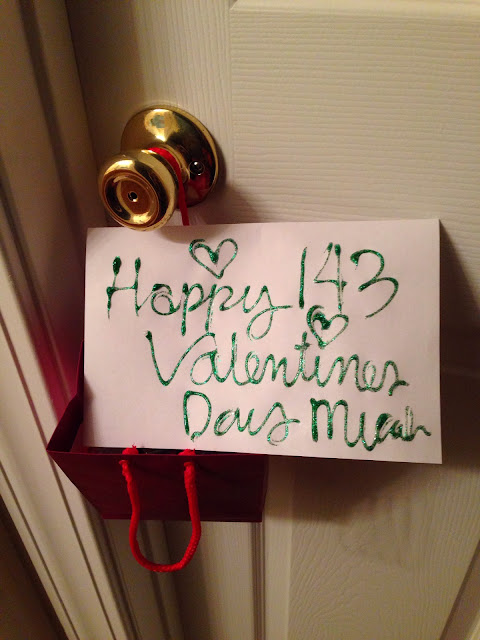 Happy 143
Valentines
Days Micah